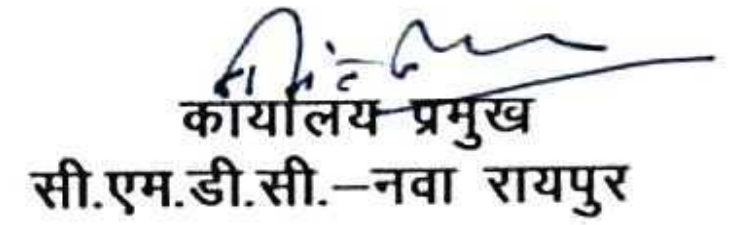 कार्यालय प्रमुख
सी.एम.डी.सी.–नवा रायपुर